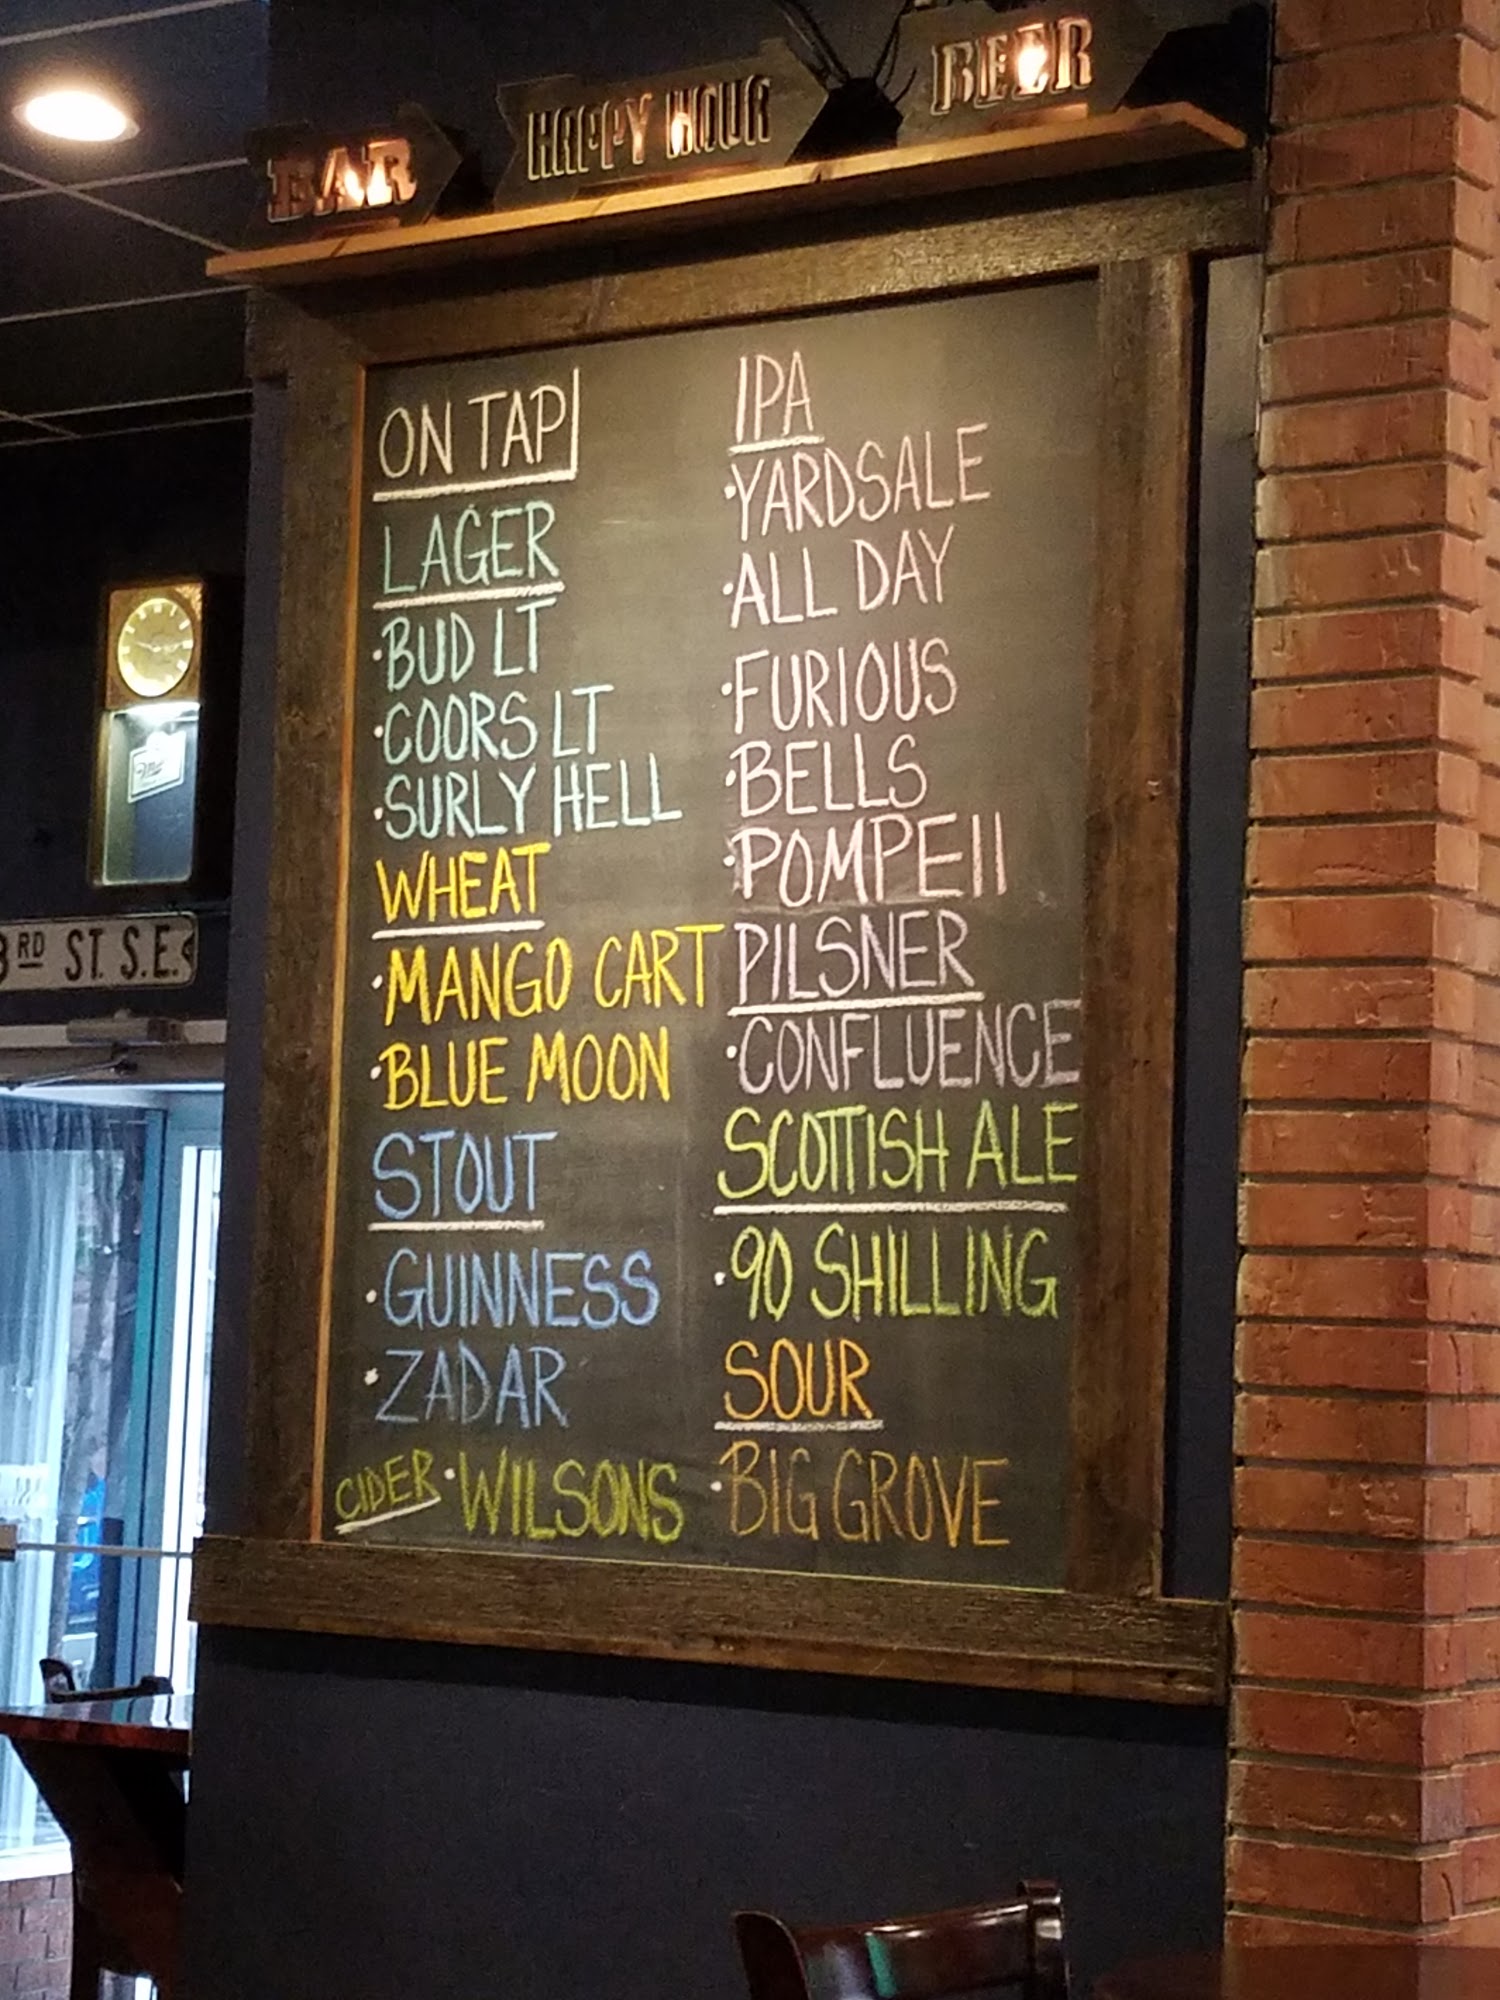 BAR
HAPPY HOUR
BEER
ON TAP
LAGER
·BUD LT
·COORS LT
·SURLY HELL
WHEAT
·MANGO CART
·BLUE MOON
STOUT
·GUINNESS
·ZADAR
CIDER·WILSONS
IPA
·YARDSALE
·ALL DAY
·FURIOUS
·BELLS
·POMPEII
PILSNER
·CONFLUENCE
SCOTTISH ALE
·90 SHILLING
SOUR
·BIG GROVE
3RD ST. S.E.